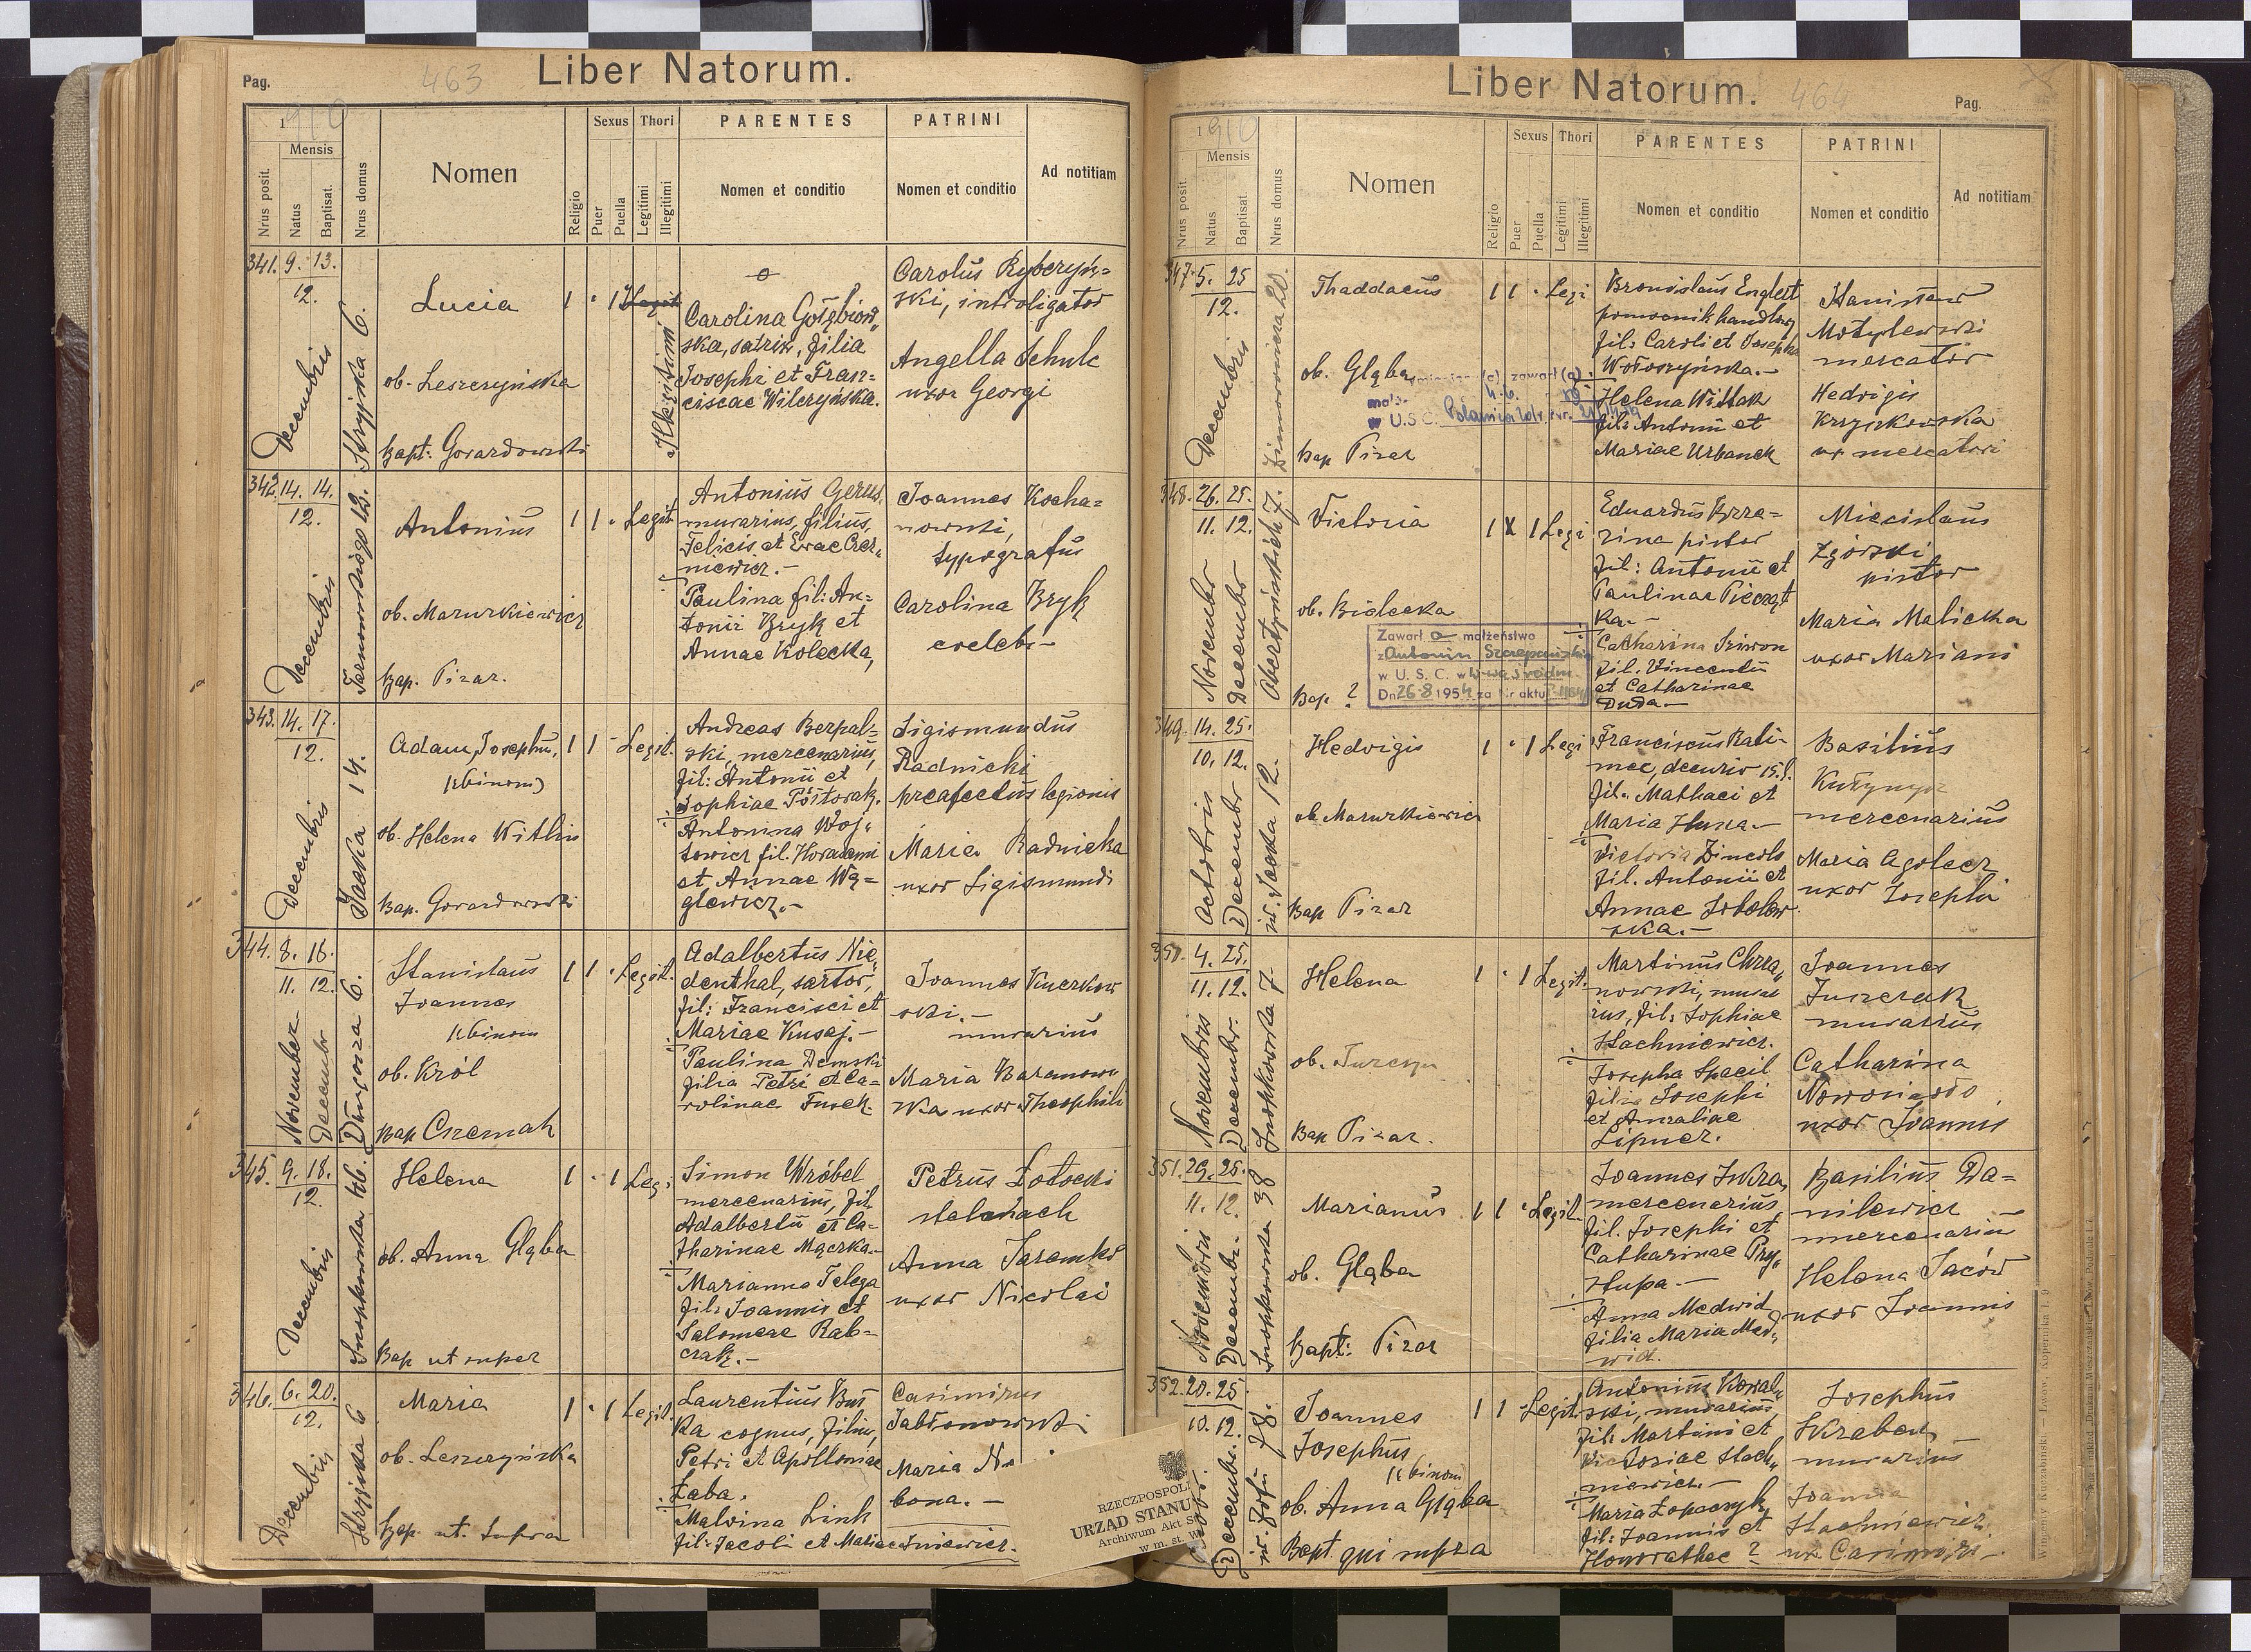 Pag.
463
Liber Natorum.
1910
Nrus posit.
Mensis
Natus
Baptisat.
Nrus domus
Nomen
Religio
Sexus
Puer
Puella
Thori
Legitimi
Illegitimi
PARENTES
Nomen et conditio
PATRINI
Nomen et conditio
Ad notitiam
341. 9. 13.
12.
Decembris
Stryjska 6.
Lucia
ob. Leszczyńska
Bapt: Gorardowski
1 · 1
Illegitimi
Carolina Gołębiow„
ska, satrix, filia
Josephi et Fran=
ciscae Wilczyńska.
Carolus Rybczyń=
ski, introligator
Angella Schulc
uxor Georgi
342. 14. 14.
12.
Decembris
Tarnowskiego 12.
Antonius
ob. Mazurkiewicz
Bap. Pizar.
1 1 · Legit.
Antonius Gerus
murarius, filius
Felicis et Evae Czer„
niewicz.-
Paulina fil: An=
tonii Bryk et
Annae Kolecka,
Joannes Kocha=
nowski,
typografus
Carolina Bryk
coelebs-
343. 14. 17.
12.
Decembris
Jacka 14.
Adam, Josephus,
(binom)
ob. Helena Witlin
Bap. Gorardowski
1 1 - Legit.
Andreas Berpal=
ski, mercenarius,
fil: Antonii et
Sophiae Półtorak.
Antonina Woj„
towicz fil.
et Annae Wę=
glewicz.-
Sigismundus
Radnicki
praefectus legionis
Maria Radnicka
uxor Sigismundi
344. 8. 18.
11. 12.
November
Decembr
Długosza 6.
Stanislaus
Joannes
(binom
ob. Król
Bap Czemah
1 1 · Legit.
Adalbertus Nie„
denthal, sartor,
fil: Francisci et
Mariae Kusaj.-
Paulina Demski
filia Petri et Ca=
rolinae Fusek.
Joannes Kuczkow
ski.-
murarius
Maria Baranow
ska uxor Theophili
345. 9. 18.
12.
Decembris
Snopkowska
Helena
ob. Anna Głąba
Bap ut super
1 · 1 Legi
Simon Wróbel
mercenarius, fil.
Adalbertii et Ca=
tharinae Mączka-
Marianna Telega
fil: Joannis et
Salomeae Rab=
czak.-
Petrus Zotocki
stelmach
Anna Jaremko
uxor Nicolai
346. 6. 20.
12.
Decembris
Stryjska 6
Maria
ob. Leszczyńska
Bap. ut. Supra
1 · 1 Legit.
Laurentius Bus
ka cognus, filius
Petri et Apolloniae
Żaba.
Malvina Link
fil: Jacobi et Mariae Iniewicz.
Casimirus
Jabłonowski
Maria
bona.-
RZECZPOSPOLI
URZĄD STANU
Archiwum Akt St
w m. st. W
Liber Natorum.
464
Pag.
1910
Nrus posit.
Mensis
Natus
Baptisat
Nrus domus
Nomen
Religio
Sexus
Puer
Puella
Thori
Legitimi
Illegitimi
PARENTES
Nomen et conditio
PATRINI
Nomen et conditio
Ad notitiam
347. 5. 25
12.
Decembris
Zimorowicza 20.
Thaddaeus
ob. Głąba
Bap Pizar
1 1 · Legi
Bronislaus Englert
pomocnik handlowy
fil: Caroli et Josepha
Wołoszyńska.-
Helena Wittak
fil: Antonii et
Mariae Urbanek
Stanisław
Motylewski
mercator
Hedvigis
Krzyżkowska
ux mercatori
zawarł (a)
w U.S.C.
348. 26. 25.
11. 12.
Novembr
Decembr
Obertyńskich 7.
Victoria
ob. Bialecka
Bap ?
1 X 1 Legi
Eduardus Brze=
zina pistor
fil: Antonii et
Paulinae Piecząt
ka.-
Catharina Sziwon
fil. Vincentii
et Catharinae
Duda-
Miecislaus
Zgórski
pistor
Maria Malicka
uxor Mariani
Zawarł a małżeństwo
z Antonim Szczepańskim
w U. S. C. w W-wa Śródm.
Dn 26-8 1954 za Nr aktu
349. 14. 25.
10. 12.
Octobris
Decembr
Jacka 12.
Hedvigis
ob. Mazurkiewicz
Bap Pizar
1 · 1 Legi
Franciscus Kali-
mec, decurio
fil. Mathaei et
Maria Huza-
Victoria Zincols
fil. Antonii et
Annae Sobolew
ska.-
Basilius
mercenarius
Maria Agolecz
uxor Josephi
350. 4. 25.
11. 12.
Novembris
Decembr.
Snopkowska 7
Helena
ob.
Bap Pizar.
1 · 1 Legit.
Martinus Chrza„
nowski, mura
rius, fil: Sophiae
Stachniewicz.
Josepha Spacil
filia Josephi
et Amaliae
Lipner.
Joannes
Juszczak
murarius
Catharina
uxor Joannis
351. 29. 25.
11. 12.
Novembri
Decembr.
Snopkowska 38
Marianus
ob. Głąba
Bapt: Pizar
1 1 · Legit.
Joannes Skira
mercenarius,
fil. Josephi et
Catharinae Przy„
stupa.-
Anna Medwid
filia Maria Med„
wid.
Basilius Da=
nilewicz
mercenariu
Helena Jaców
uxor Joannis
352. 20. 25.
10. 12.
Decembr.
św. Zofii 78.
Joannes
Josephus
(binom
ob. Anna Głąba
Bapt. qui supra
1 1 · Legit.
Antonius Kowal„
ski, murarius
fil: Martini et
Victoriae Stach„
niewicz.-
Maria Łopaczyk
fil: Joannis et
Honorathae ?
Josephus
Skraben
murarius
Joanna
Stachniewicz
ux. Casimiri-